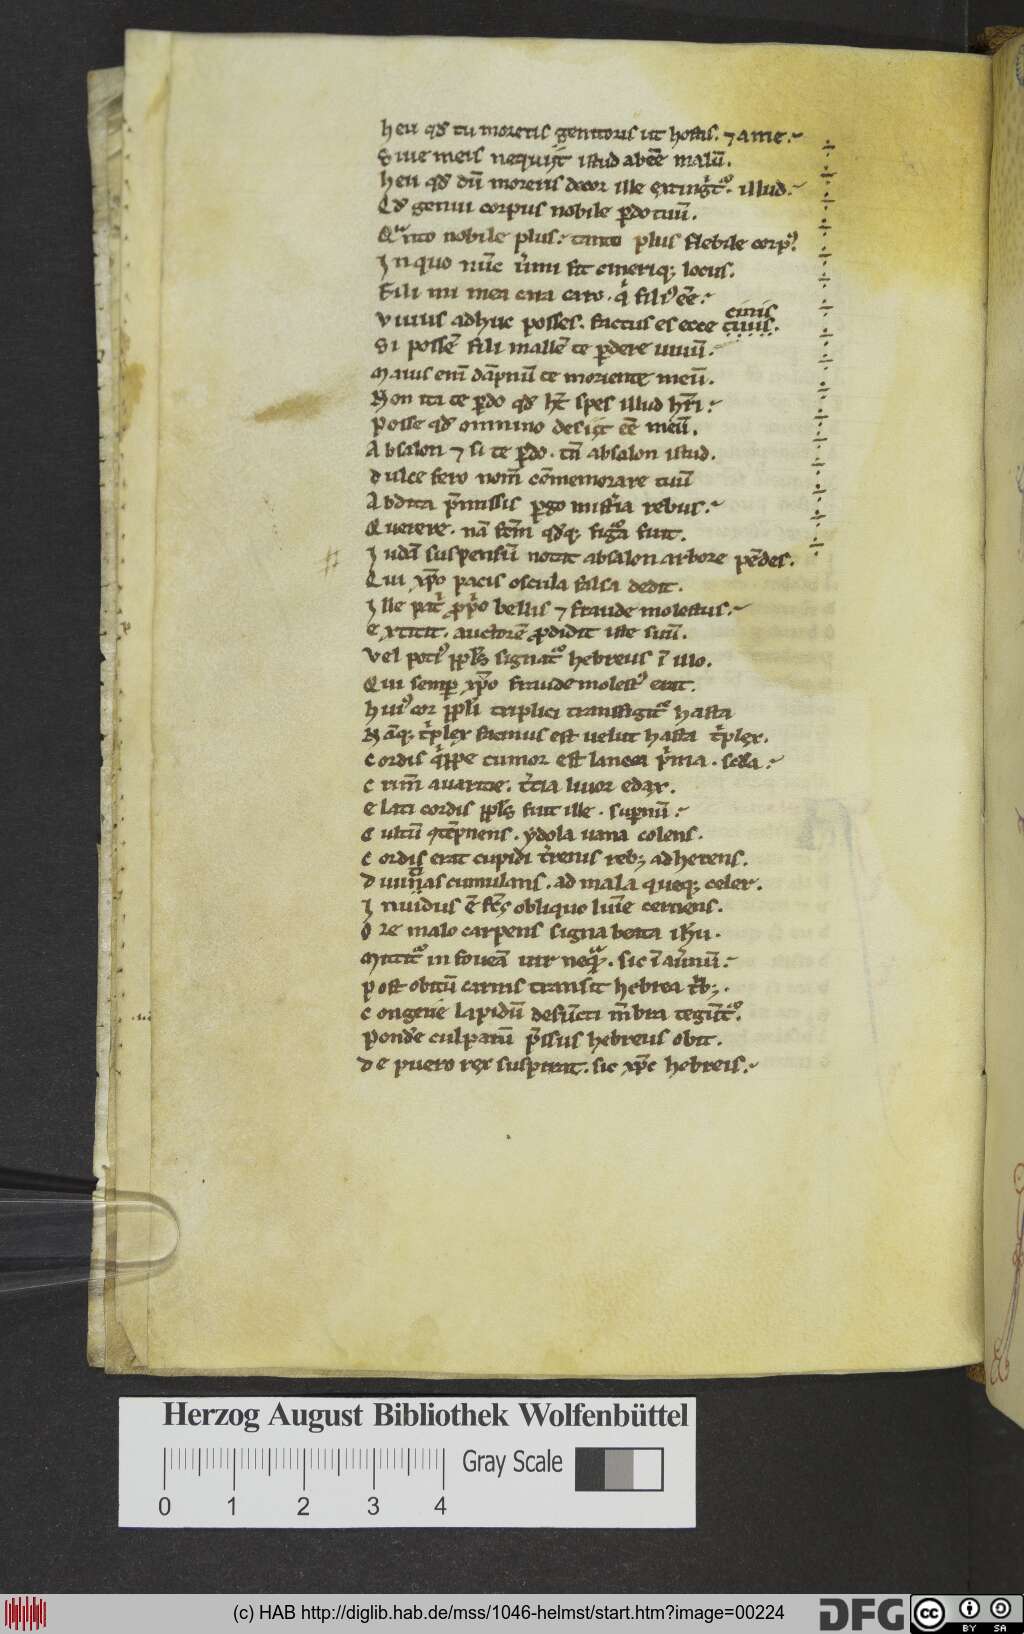 heu qd tu moreris genitoris ut hostis. ⁊ a me.
Siue meis nequijt istud abeē malū.
heu qd dū moreris decor ille extingᷓ. illud.
Qd genui corpus nobile ꝑdo tuū.
Qᵃnto nobile plus. tanto plus flebile corpꝰ
In quo nūc ū̓mi fit cineriqꝫ locus.
Fili mi mea cara caro. q̇ filiꝰ eē.
cinis
Viuus adhuc posses. factus es ecce ciuis.
Si possē fili mallē te ꝑdere uiuū.
Maius eni dāpnū te moriente meū.
Non ita te ꝑdo qd spes illud
Posse qd omnino desijt eē meū.
Absalon ⁊ si te ꝑdo. tn̄ absalon istud.
Dulce fero nom̄ cōmemorare tuū
Abdita p̄missis ꝑgo rebus.
Querere. nā fuit.
Iudā suspensū notat absalon arbore pēdes.
Qui xp̄o pacis oscula falsa dedit.
Ille bellis ⁊ fraude molestus.
Extitit. auctorē ꝓdidit iste suū.
Vel potiꝰ hebreus ī illo.
Qui semꝑ xp̄o fraude molestꝰ erat.
huiꝰ cor ppl̄i triplici transfigitᷓ hasta
Nāqꝫ tⁱplex facinus est uelut hasta tⁱplex.
Cordis tumor est lancea pⁱma. scd̄a.
Crim̄ auaritie. t̓cia liuor edax.
Elati cordis ppl̄s fuit ille. supnū.
Cultū ꝯtēpnens. ydola uana colens.
Cordis erat cupidi t̓renis rebꝫ adherens.
Diuitias cumulans. ad mala queqꝫ celer.
Inuidus ē obliquo lumē cernens.
Ore malo carpens signa beata ih̄u.
Mittitᷓ in foueā uir neqᷓꝫ. sic ī au̓nū.
Post obitū carnis transit hebrea
Congerie lapidū defūcti mēbra tegūtᷓ.
Ponde̓ culparū p̄ssus hebreus obit.
De puero rex suspirat. sic xp̄c hebreis.
Herzog August Bibliothek Wolfenbüttel
Gray Scale
0 1 2 3 4
(c) HAB http://diglib.hab.de/mss/1046-helmst/start.htm?image=00224
DFG
cc BY SA